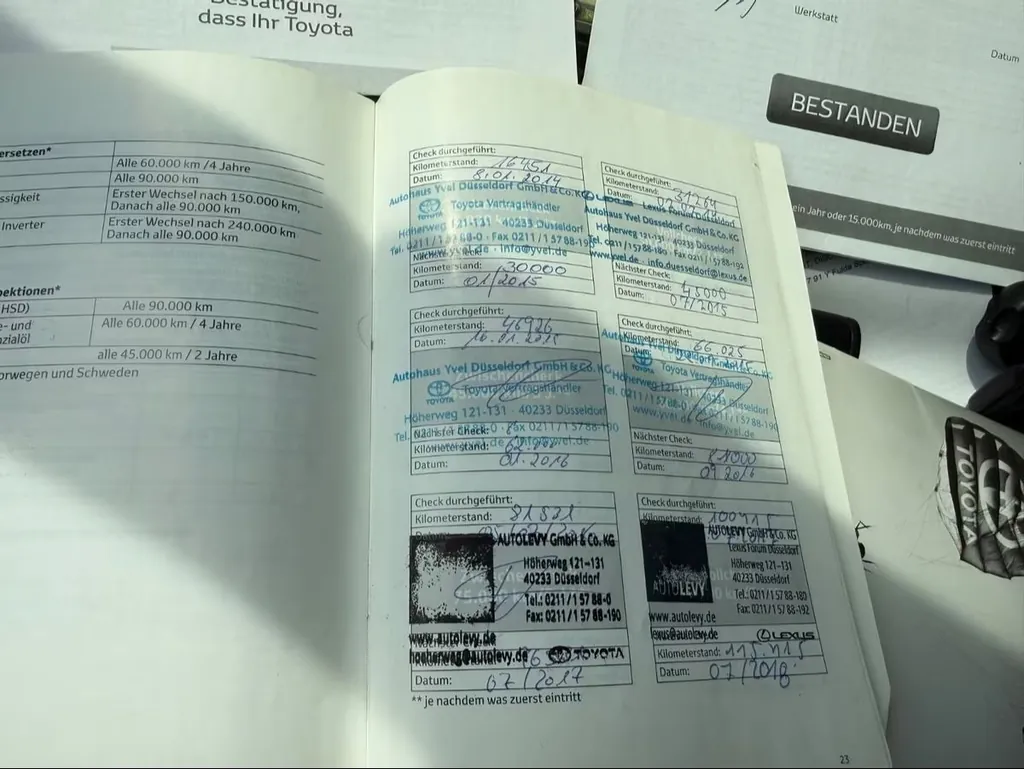 Bestätigung,
dass Ihr Toyota
Werkstatt
Datum
BESTANDEN
ein Jahr oder 15.000km, je nachdem was zuerst eintritt
ersetzen*
Alle 60.000 km /4 Jahre
Alle 90.000 km
ssigkeit
Erster Wechsel nach 150.000 km,
Danach alle 90.000 km
Inverter
Erster Wechsel nach 240.000 km
Danach alle 90.000 km
pektionen*
HSD)
Alle 90.000 km
e- und
nzialöl
Alle 60.000 km / 4 Jahre
alle 45.000 km / 2 Jahre
orwegen und Schweden
Check durchgeführt:
Kilometerstand: 16451
Datum: 8.01.2014
Autohaus Yvel Düsseldorf GmbH & Co. KG
TOYOTA Toyota Vertragshändler
Höherweg 121-131 · 40233 Düsseldorf
Tel. 0211/1 57 88-0 · Fax 0211/1 57 88-190
www.yvel.de · info@yvel.de
Nächster Check:
Kilometerstand: 30000
Datum: 01/2015
Check durchgeführt:
Kilometerstand:
Datum:
Lexus Forum Düsseldorf
Autohaus Yvel Düsseldorf GmbH & Co. KG
Höherweg 121-131 · 40233 Düsseldorf
Tel. 0211/1 57 88-180 · Fax 0211/1 57 88-192
www.yvel.de · info.duesseldorf@lexus.de
Nächster Check:
Kilometerstand: 45000
Datum: 07/2015
Check durchgeführt:
Kilometerstand: 46926
Datum: 16.01.2015
Autohaus Yvel Düsseldorf GmbH & Co. KG
TOYOTA Toyota Vertragshändler
Höherweg 121-131 · 40233 Düsseldorf
Tel. 0211/1 57 88-0 · Fax 0211/1 57 88-190
www.yvel.de · info@yvel.de
Nächster Check:
Kilometerstand:
Datum: 01.2016
Check durchgeführt:
Kilometerstand: 66.025
Datum:
Autohaus Yvel Düsseldorf GmbH & Co. KG
TOYOTA Toyota Vertragshändler
Höherweg 121-131 · 40233 Düsseldorf
Tel. 0211/1 57 88-0 · Fax 0211/1 57 88-190
www.yvel.de · info@yvel.de
Nächster Check:
Kilometerstand: 81000
Datum: 09.2016
Check durchgeführt:
Kilometerstand: 81821
Datum:
AUTOLEVY GmbH & Co. KG
Höherweg 121-131
40233 Düsseldorf
Tel.: 0211/1 57 88-0
Fax: 0211/1 57 88-190
www.autolevy.de
hoeherweg@autolevy.de TOYOTA
Datum: 07/2017
Check durchgeführt:
Kilometerstand: 100415
AUTOLEVY GmbH & Co. KG
Lexus Forum Düsseldorf
Höherweg 121-131
40233 Düsseldorf
AUTOLEVY
Tel.: 0211/1 57 88-180
Fax: 0211/1 57 88-192
www.autolevy.de
lexus@autolevy.de LEXUS
Kilometerstand: 115.415
Datum: 07/2018
** je nachdem was zuerst eintritt
23
TOYOTA